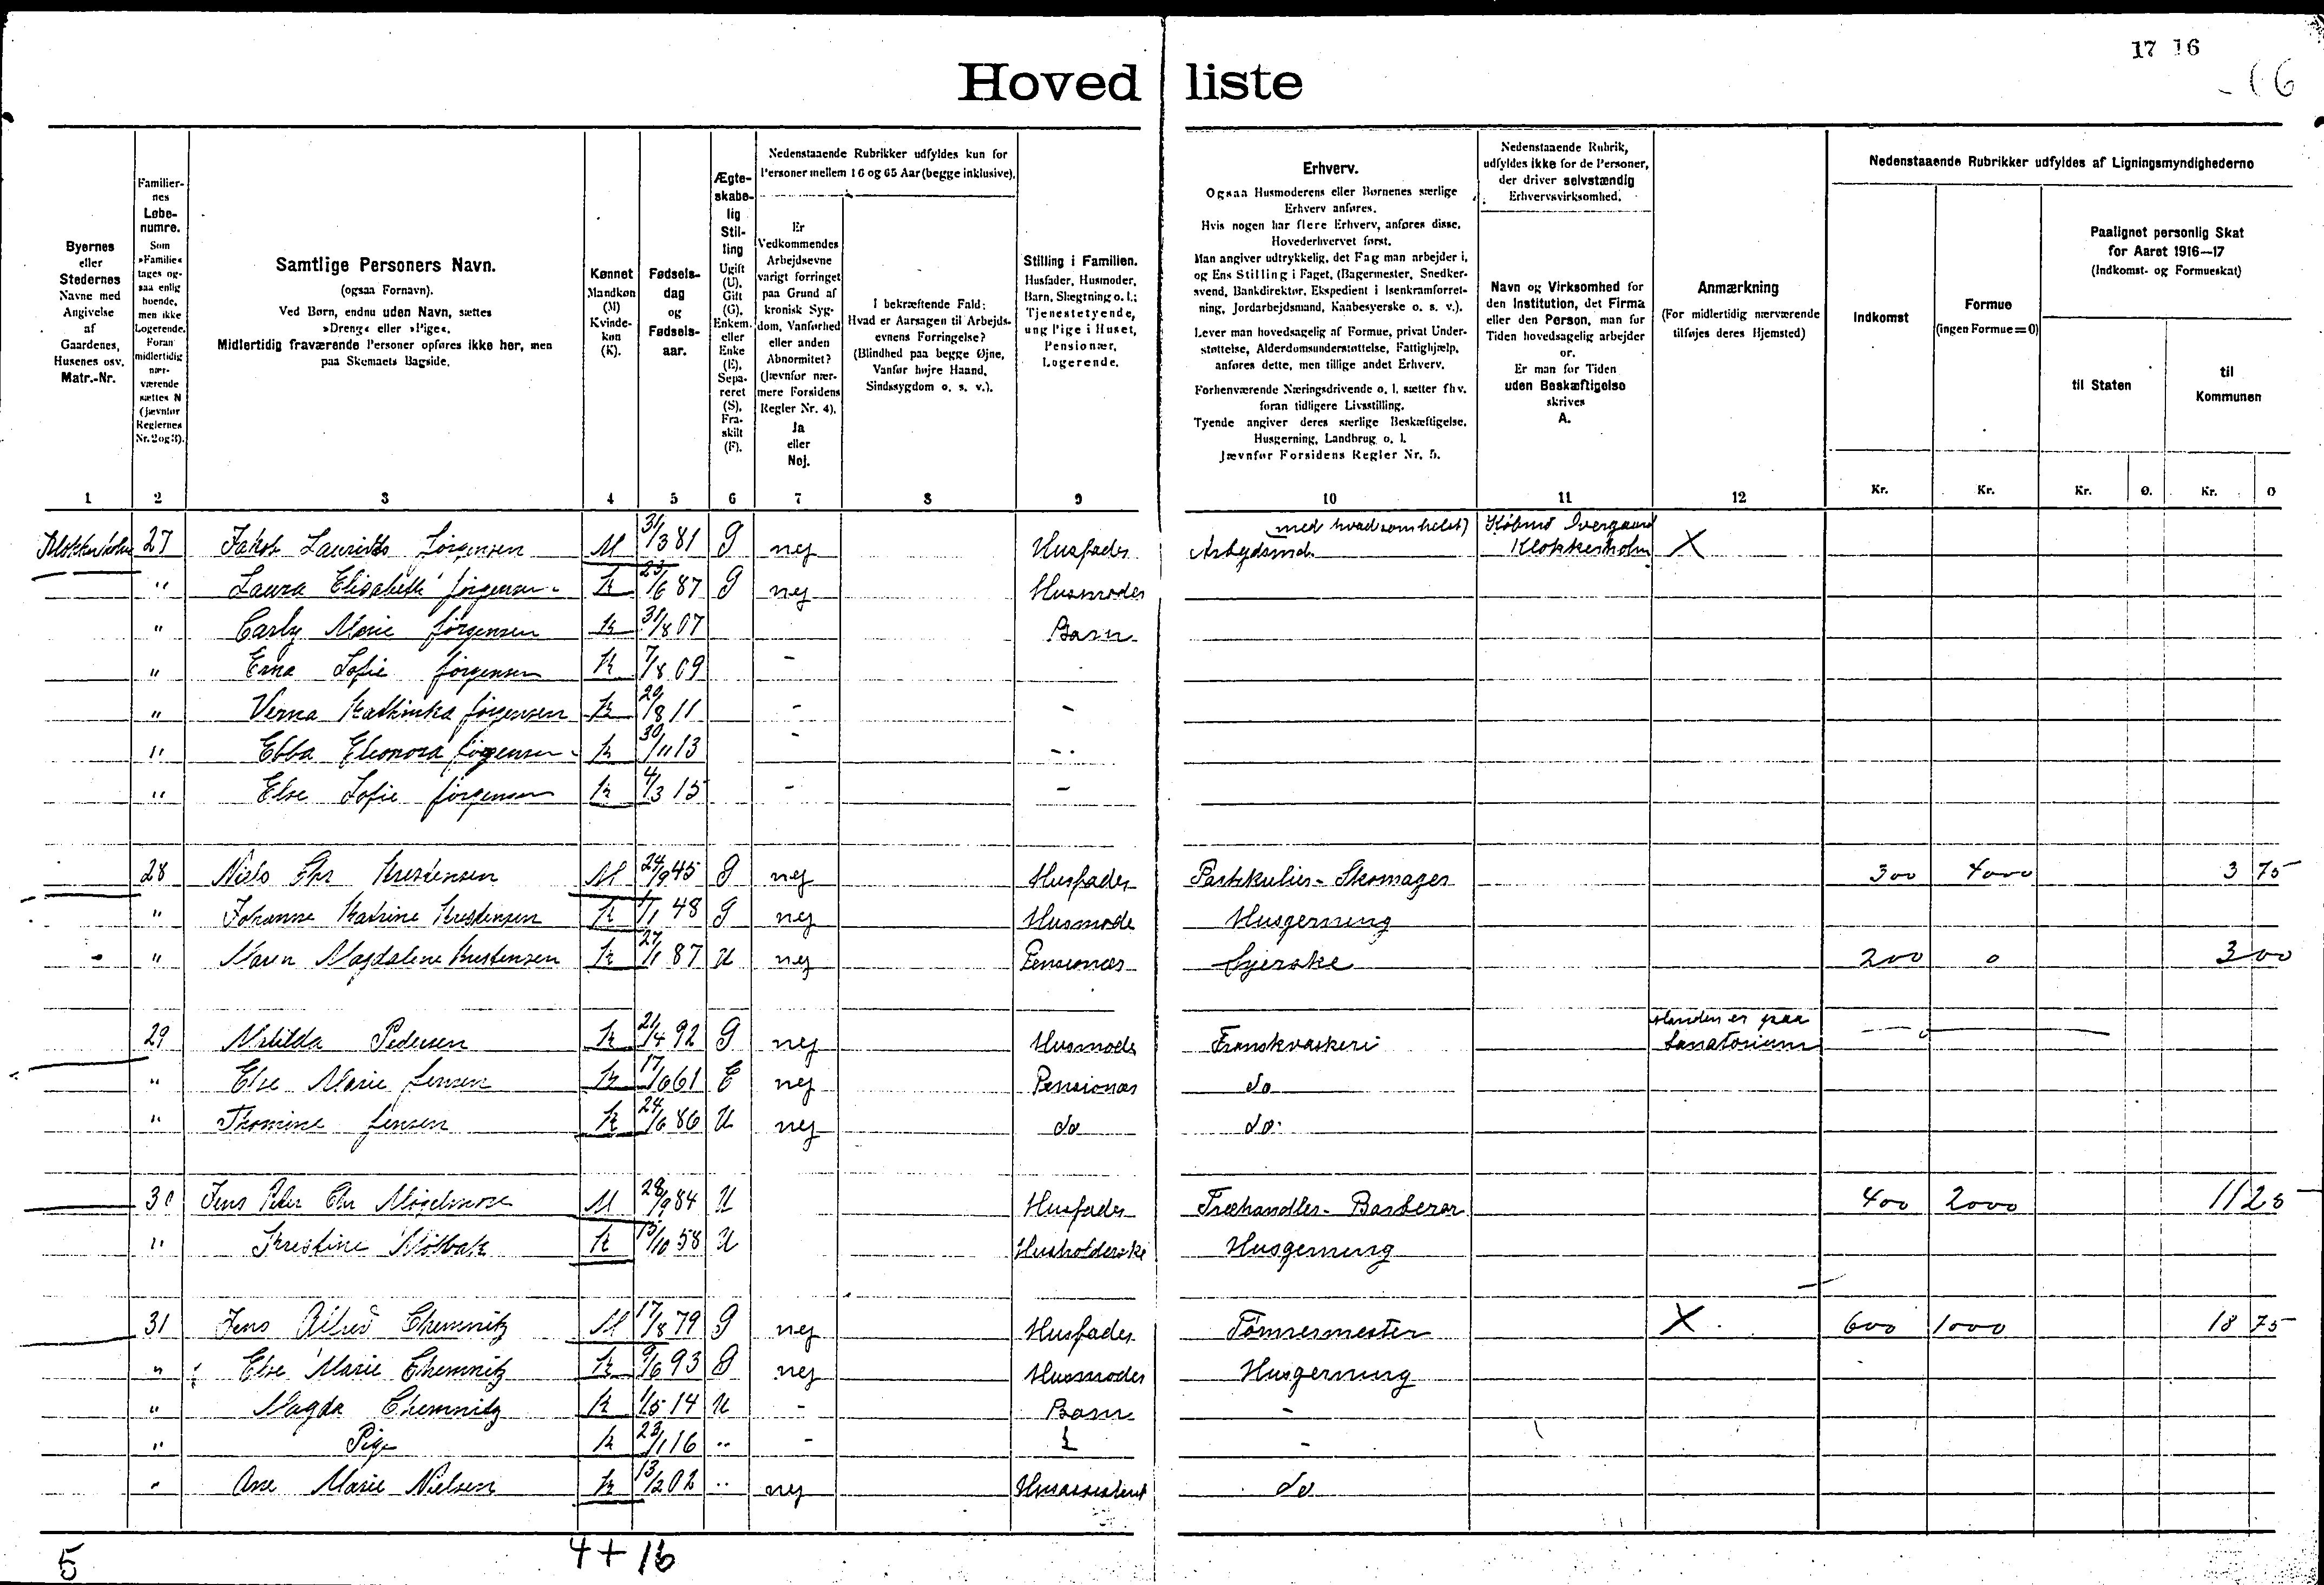 17 16
66
Hoved liste
Byernes eller Stedernes Navne med Angivelse af Gaardenes, Husenes osv. Matr.-Nr.
Familiernes Løbenumre. Som »Familie« tages ogsaa enlig boende, men ikke Logerende. Foran midlertidig nærværende sættes N (jævnfør Reglernes Nr. 2 og 3).
Samtlige Personers Navn.
(ogsaa Fornavn).
Ved Børn, endnu uden Navn, sættes
»Dreng« eller »Pige«.
Midlertidig fraværende Personer opføres ikke her, men
paa Skemaets Bagside.
Kønnet Mandkøn (M) Kvindekøn (K).
Fødselsdag og Fødselsaar.
Ægteskabelig Stilling Ugift (U). Gift (G). Enkem. eller Enke (E). Separeret (S). Fraskilt (F).
Nedenstaaende Rubrikker udfyldes kun for
Personer mellem 16 og 65 Aar (begge inklusive).
Er Vedkommendes Arbejdsevne varigt forringet paa Grund af kronisk Sygdom, Vanførhed eller anden Abnormitet? (Jævnfør nærmere Forsidens Regler Nr. 4). Ja eller Nej.
I bekræftende Fald: Hvad er Aarsagen til Arbejdsevnens Forringelse? (Blindhed paa begge Øjne, Vanfør højre Haand, Sindssygdom o. s. v.).
Stilling i Familien.
Husfader, Husmoder, Barn, Slægtning o. l.; Tjenestetyende, ung Pige i Huset, Pensionær, Logerende.
Erhverv.
Ogsaa Husmoderens eller Børnenes særlige
Erhverv anføres.
Hvis nogen har flere Erhverv, anføres disse,
Hovederhvervet først.
Man angiver udtrykkelig, det Fag man arbejder i,
og Ens Stilling i Faget, (Bagermester, Snedker-
svend, Bankdirektør, Ekspedient i Isenkramforret-
ning, Jordarbejdsmand, Kaabesyerske o. s. v.).
Lever man hovedsagelig af Formue, privat Under-
støttelse, Alderdomsunderstøttelse, Fattighjælp,
anføres dette, men tillige andet Erhverv.
Forhenværende Næringsdrivende o. l. sætter fhv.
foran tidligere Livsstilling.
Tyende angiver deres særlige Beskæftigelse,
Husgerning, Landbrug o. l.
Jævnfør Forsidens Regler Nr. 5.
Nedenstaaende Rubrik,
udfyldes ikke for de Personer,
der driver selvstændig
Erhvervsvirksomhed.
Navn og Virksomhed for
den Institution, det Firma
eller den Person, man for
Tiden hovedsagelig arbejder
for.
Er man for Tiden
uden Beskæftigelse
skrives
A.
Anmærkning
(For midlertidig nærværende
tilføjes deres Hjemsted)
Nedenstaaende Rubrikker udfyldes af Ligningsmyndighederne
Indkomst
Formue
(ingen Formue=0)
Paalignet personlig Skat
for Aaret 1916—17
(Indkomst- og Formueskat)
til Staten
til Kommunen
1 2 3 4 5 6 7 8 9 10 11 12 Kr. Kr. Kr. Ø. Kr. Ø
Klokkerholm 27 Jakob Laurits Jørgensen M 31/3 81 G nej Husfader Arbejdsmd. (med hvadsomhelst) Købmd Overgaard Klokkerholm X
" Laura Elisabeth Jørgensen K 23/6 87 G nej Husmoder
" Carly Marie Jørgensen K 31/8 07 Barn
" Erna Sofie Jørgensen K 7/8 09 -
" Verna Kathinka Jørgensen K 20/8 11 - -
" Ebba Eleonora Jørgensen K 30/11 13 - -
" Else Sofie Jørgensen K 4/3 15 - -
28 Niels Chr Krestensen M 24/9 45 G nej Husfader Partikulier - Skomager 300 4000 3 75
" Johanne Katrine Krestensen K 1/1 48 G nej Husmode Husgerning
" Maren Magdalene Krestensen K 27/1 87 U nej Pensionær Syerske 200 0 3 00
29 Matilda Pedersen K 21/4 92 G nej Husmode Franskvaskeri Manden er paa Sanatorium
" Else Marie Jensen K 17/6 61 E nej Pensionær do
" Thomine Jensen K 24/6 86 U nej do do
30 Jens Peter Chr Mögelmose M 28/9 84 U Husfader Træhandler - Barberer 400 2000 11 25
" Krestine Mölbak K 15/10 58 U Husholderske Husgerning
31 Jens Alfred Chemnitz M 17/8 79 G nej Husfader Tömrermester X 600 1000 18 75
" Else Marie Chemnitz K 9/6 93 G nej Husmoder Husgerning
" Magda Chemnitz K 1/5 14 U - Barn -
" Pige K 23/1 16 " - -
" Ane Marie Nielsen K 13/2 02 " nej Husassistent do
5 4 + 16